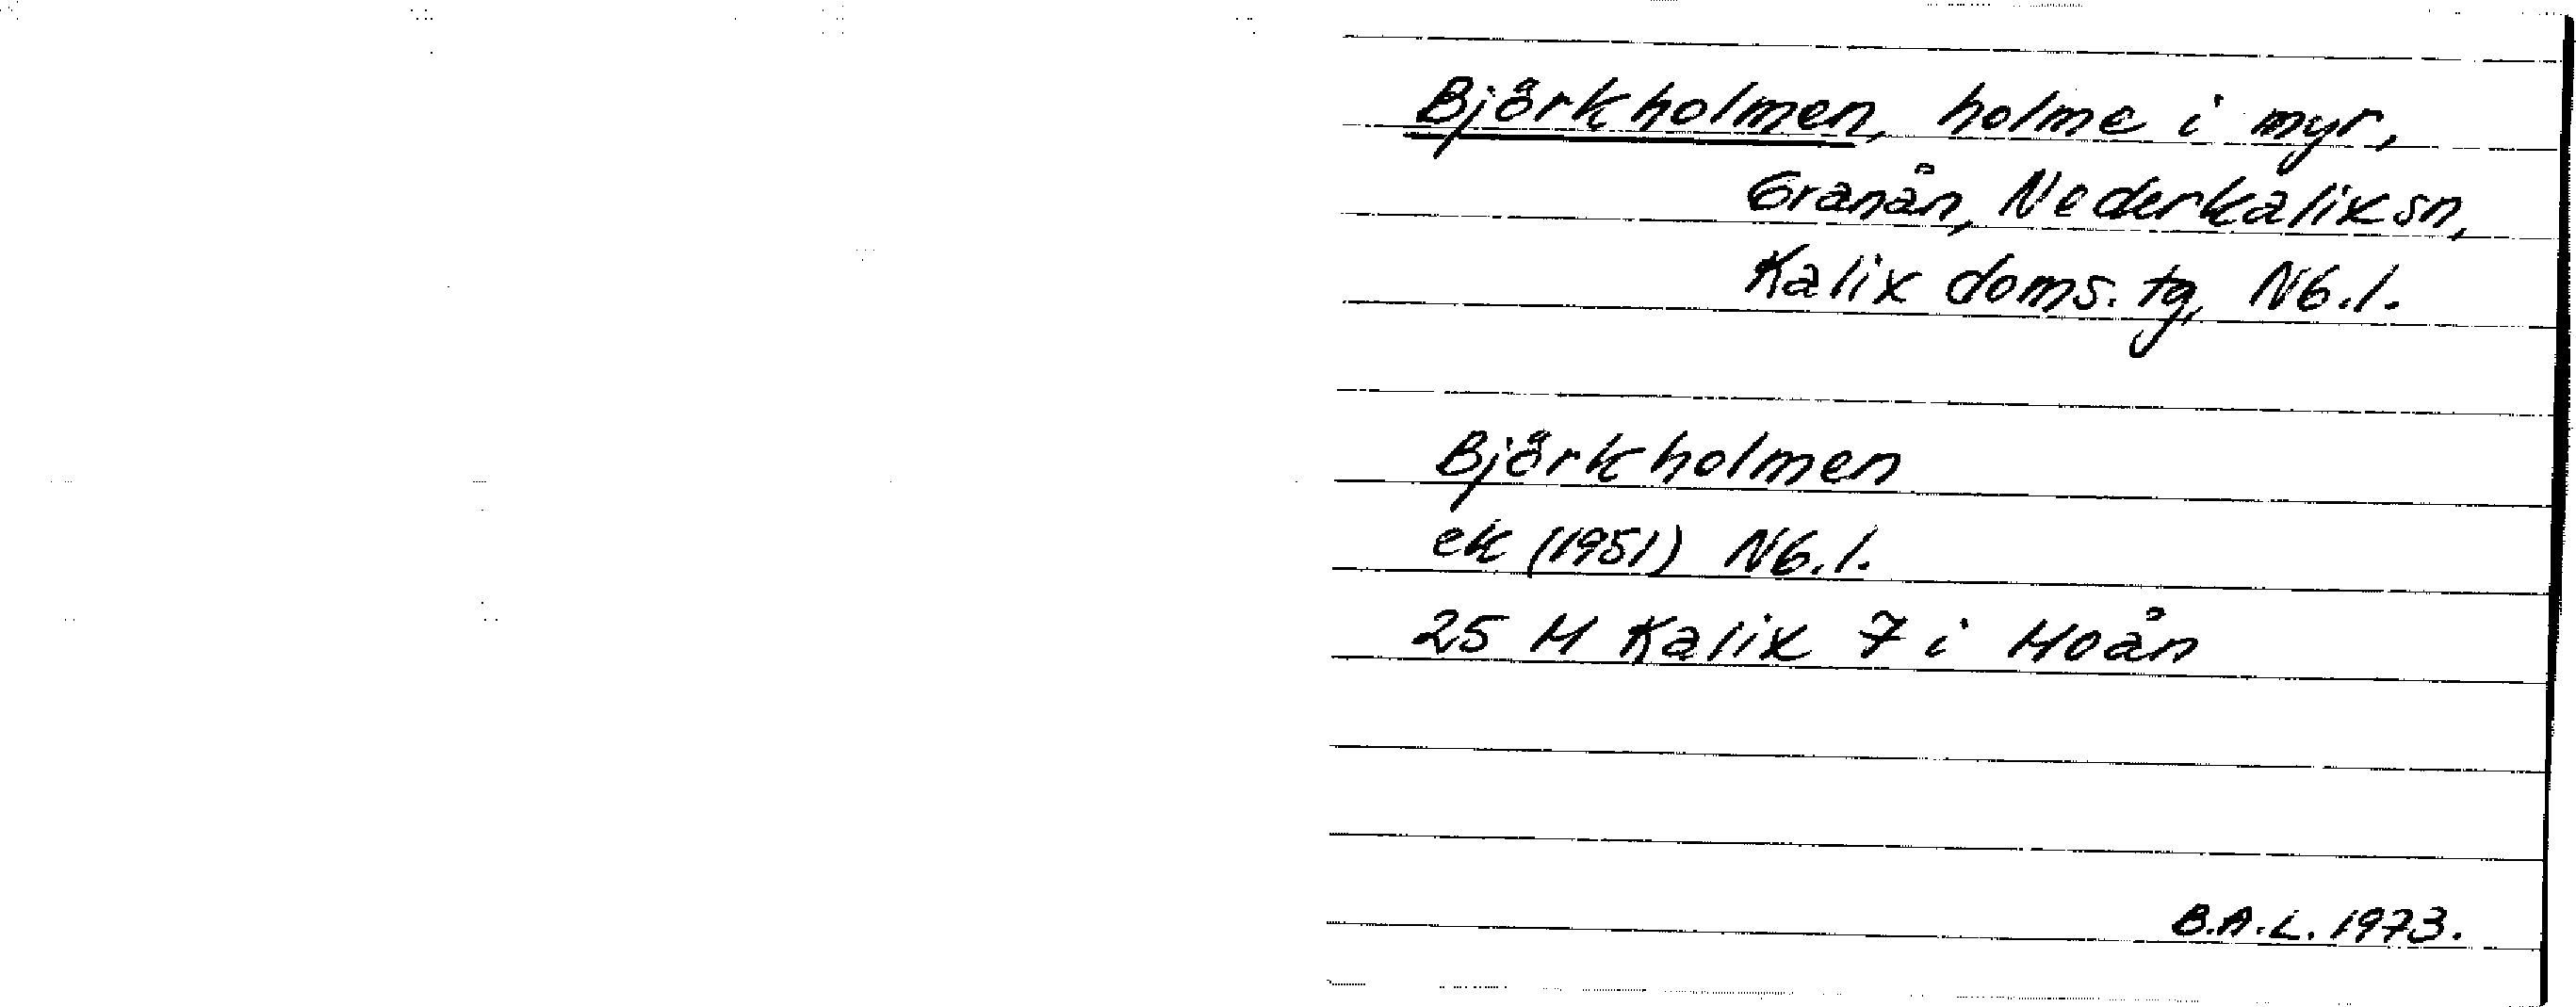 Björkholmen, holme i myr,
Granån, Nederkalix sn,
Kalix doms. tg, Nb.l.
Björkholmen
ek (1951) Nb.l.
25 M Kalix 7 i Moån
B.A.L. 1973.